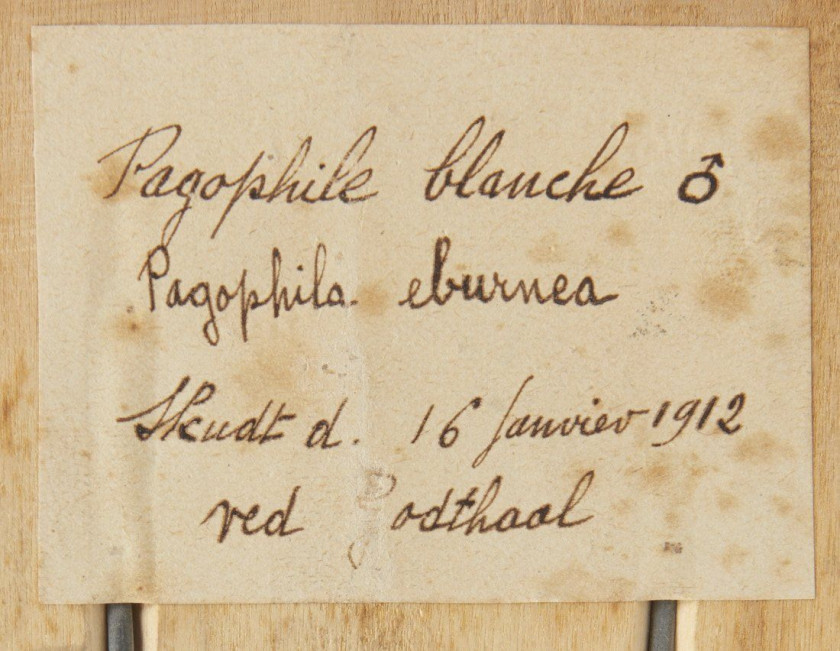 Pagophile blanche ♂
Pagophila eburnea
Skudt d. 16 Janvier 1912
ved